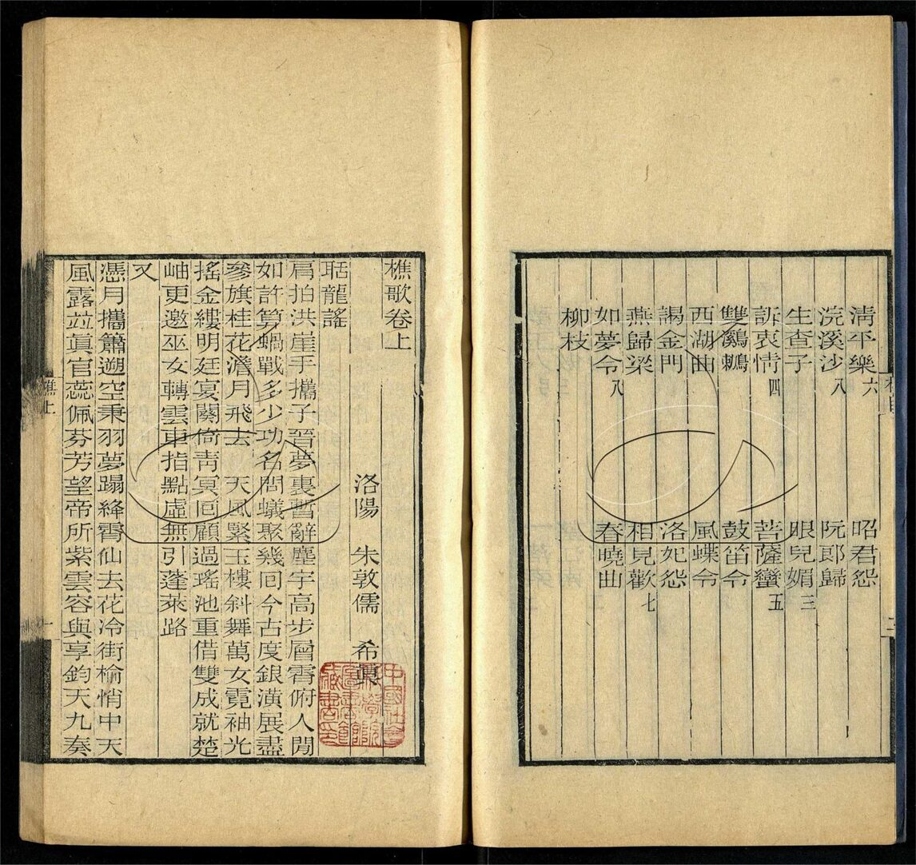 清平樂六　昭君怨
浣溪沙八　阮郎歸
生查子　眼兒媚三
訴衷情四　菩薩蠻五
雙鸂鶒　鼓笛令
西湖曲　風蝶令
謁金門　洛妃怨
燕歸梁　相見歡七
如夢令八　春曉曲
柳枝
樵歌卷上
洛陽　朱敦儒　希眞
聒龍謠
肩拍洪崖手攜子晉夢裏暫辭塵宇高步層霄俯人閒
如許算蝸戰多少功名問蟻聚幾回今古度銀潢展盡
參旗桂花澹月飛去　天風緊玉樓斜舞萬女霓袖光
搖金縷明廷宴闋倚靑冥回顧過瑤池重借雙成就楚
岫更邀巫女轉雲車指點虛無引蓬萊路
又
憑月攜簫遡空秉羽夢蹋絳霄仙去花冷街榆悄中天
風露竝眞官蕊佩芬芳望帝所紫雲容與享鈞天九奏
樵上
一